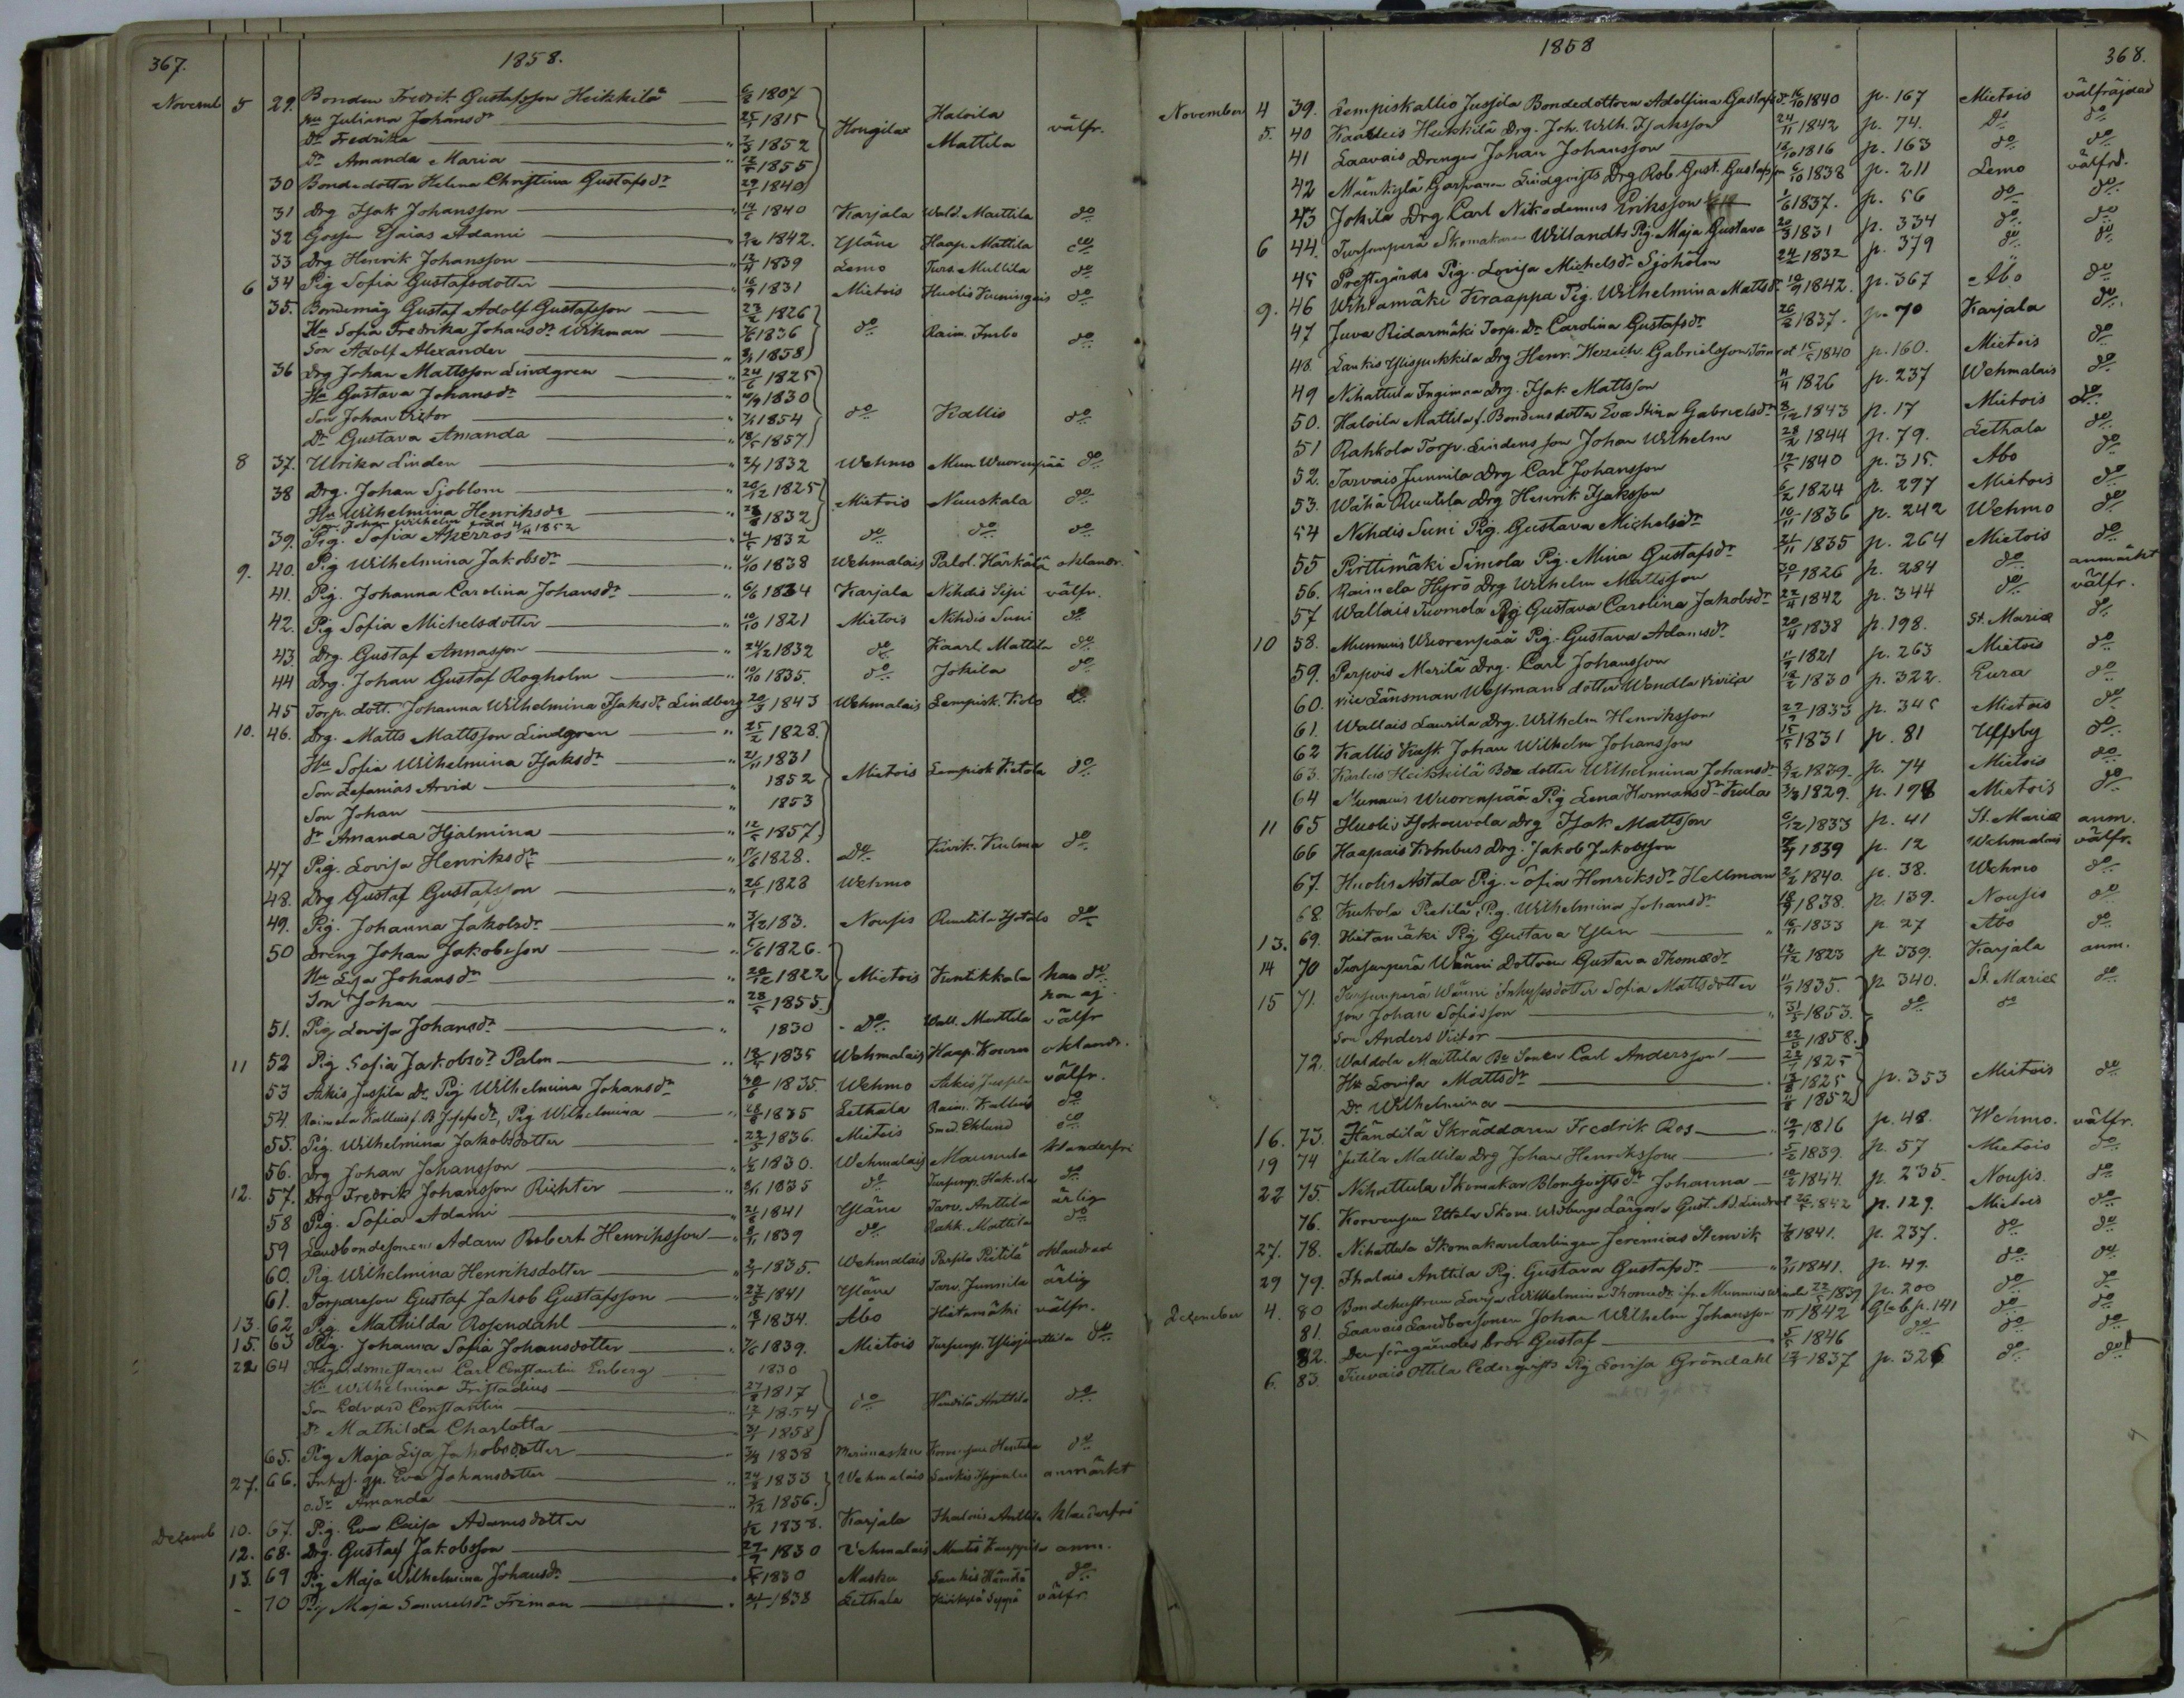 367.
1858.
Novemb 5 29. Bonden Fredrik Gustafsson Heikkilä 6/2 1807
hu Juliana Johansdr 25/1 1815 Hongilax Haloila Mattila välfr.
Dr Fredrika 1852
Dr Amanda Maria 1855
30 Bondedotter Helena Christina Gustafsdr 29/1 1840
31 Drg Isak Johansson 14/6 1840 Karjala Wald. Marttila do
32 Gossen Esaias Adami 1842. Yläne Haap. Mattila do
33 Drg Henrik Johansson 13/4 1839 Lemo Turs. Mullila do
6 34 Pig Sofia Gustafsdotter 1831 Mietois Huolis Kuningais do
35. Bondemåg Gustaf Adolf Gustafsson 23/2 1826
Hu Sofia Fredrika Johansdr Wikman 1836 do Raim. Imbo do
Son Adolf Alexander 1858
36 Drg Johan Mattsson Lindgren 24/6 1825
Hu Gustava Johansdr 1830
Son Johan Victor 1854 do Kallis do
Dr Gustava Amanda 1857
8 37. Ulrika Linden 2/4 1832 Wehmo Mun Wuorenpää do
38 Drg. Johan Sjöblom 20/12 1825
Hu Wilhelmina Henriksdr 1832 Mietois Nuuskala do
Son Johan Wilhelm född 4/11 1852
39. Pig. Sofia Åkerros 1832 do do do
9. 40. Pig Wilhelmina Jakobsdr 4/10 1838 Wehmalais Palol. Härkälä oklandr.
41. Pig. Johanna Carolina Johansdr 6/6 1834 Karjala Nihdis Sipi välfr.
42. Pig Sofia Michelsdotter 10/10 1821 Mietois Nihdis Suni do
43. Drg. Gustaf Annasson 24/12 1832 do Kaarl. Mattila do
44 Drg. Johan Gustaf Rogholm 10/10 1835. do Jokila do
45 Torp. dott. Johanna Wilhelmina Isaksdr Lindberg 20/3 1843 Wehmalais Lempisk. Kolo do
10. 46. Drg. Matts Mattsson Lindgren 25/2 1828.
Hu Sofia Wilhelmina Isaksdr 21/11 1831
Son Zefanias Arvid 1852 Mietois Lempisk Ketola do
Son Johan 1853
dr Amanda Hjalmina 12/5 1857
47 Pig. Lovisa Henriksdr 17/6 1828. Do Kirik. Kulma do
48. Drg Gustaf Gustafsson 26/1 1828 Wehmo
49. Pig. Johanna Jakobsdr 3/12 183. Nousis Ruutila Isotalo do
50 Dreng Johan Jakobsson 5/6 1826.
Hu Lisa Johansdr 20/12 1822 Mietois Kuntikkala han do
Son Johan 28/5 1855. hon ej
51. Pig Lovisa Johansdr 1830 Do Wall. Marttila välfr
11 52 Pig. Sofia Jakobsdr Palm 1835 Wehmalais Haap. Kouvu oklandr.
53 Askis Jussila Dr. Pig Wilhelmina Johansdr 1835. Wehmo Askis Jussila välfr.
54. Raimela Kalluis f. B Josefsdr, Pig Wilhelmina 1835 Lethala Raim. Kalluis do
55. Pig. Wilhelmina Jakobsdotter 23/5 1836. Mietois Smed. Eklund do
56. Drg Johan Johansson 1830. Wehmalais Maunula klanderfri
12. 57. Drg Fredrik Johansson Richter 1835 do Tursunp. do
58 Pig. Sofia Adami 1841 Yläne Tarv. Anttila ärlig
59 Landbondesonen Adam Robert Henriksson 1839 do Rahk. Mattila do
60. Pig Wilhelmina Henriksdotter 1835. Wehmalais Pietilä oklandrad
61. Torparson Gustaf Jakob Gustafsson 27/5 1841 Yläne Tarv. Junnila ärlig
13. 62 Pig. Mathilda Rosendahl 1834. Åbo Hietamäki välfr.
15. 63 Pig. Johanna Sofia Johansdotter 1839. Mietois Tursunp. do
22 64 Carl Constantin Enberg 1830
Hu Wilhelmina Fristadius 27/8 1817
Son Edvard Constantin 1854 do Händilä Anttila do
dr Mathilda Charlotta 1858
65. Pig Maja Lisa Jakobsdotter 1838 Merimasku do
27. 66. Inhys. qp. Eva Johansdotter 24/8 1833 Wehmalais anmärkt
o. dr Amanda 1856.
Decemb 10. 67. Pig. Eva Caisa Adamsdotter 1838. Karjala Ihalais Anttila klanderfri
12. 68. Drg. Gustaf Jakobsson 1830 Vehmalais anm.
13. 69 Pig Maja Wilhelmina Johansdr 1830 Masku do
- 70 Pig Maja Samuelsdr Friman 1838 Lethala välfr.
1858
368.
November 4 39. Lempiskallio Jussila Bondedottren Adolfina Gustafsdr 16/10 1840 p. 167 Mietois välfräjdad
5. 40 Kaarleis Heikkilä Drg. Joh. Wilh. Isaksson 24/11 1842 p. 74. Do do
41 Saavais Drengen Johan Johansson 1816 p. 163 do do
42 Münkylä Garfvaren Lindqvists Drg Rob Gust. Gustafson 6/10 1838 p. 211 Lemo välfrd.
43 Jokila Drg Carl Nikodemus Eriksson 1/6 1837. p. 56 do do
6 44. Tursunperä Skomakaren Willandts Pig. Maja Gustava 20/3 1831 p. 334 do do
45 Prestgårds Pig. Lovisa Michelsdr Sjöholm 24/2 1832 p. 379 do do
9. 46 Wihtamäki Kraappa Pig. Wilhelmina Mattsdr 1842. p. 367 Åbo do
47 Juva Ridarmäki Torp. Dr Carolina Gustafsdr 26/2 1837. p. 70 Karjala do
48. Lankis Ylisjuskkila Drg Henr. Henrik Gabrielsson 1840 p. 160. Mietois do
49 Nihattula Ingiman Drg. Isak Mattsson 4/4 1826 p. 237 Wehmalais do
50. Haloila Mattila f. Bondens dotter Eva Stina Gabrielsdr 8/12 1843 p. 17 Mietois do
51 Rahkola Torp. Lindens son Johan Wilhelm 28/2 1844 p. 79. Lethala do
52. Tarvais Junnila Drg Carl Johansson 1840 p. 315. Abo do
53. Wähä Ruutila Drg Henrik Isaksson 6/2 1824 p. 297 Mietois do
54 Nihdis Suni Pig. Gustava Michelsdr 10/11 1836 p. 242 Wehmo do
55 Pirttimäki Simola Pig. Mina Gustafsdr 21/11 1835 p. 264 Mietois do
56. Raimela Hyrö Drg Wilhelm Mattsson 30/1 1826 p. 284 do anmärkt
57 Wallais Tuomola Pig Gustava Carolina Jakobsdr 22/4 1842 p. 344 do välfr.
10 58. Munnuis Wuorenpää Pig. Gustava Adamsdr 1838 p. 198. St. Mariæ do
59. Perpois Merilä Drg. Carl Johansson 1821 p. 263 Mietois do
60. vice Länsman Westmans dotter Wendla Vivica 1830 p. 322. Eura do
61. Wallais Laurila Drg. Wilhelm Henriksson 1833 p. 345 Mietois do
62 Kallis Kusk Johan Wilhelm Johansson 15/5 1831 p. 81 Uskby do
63. Karleis Heikkilä Bde dotter Wilhelmina Johansdr 1839. p. 74 Mietois do
64 Munnuis Wuorenpää Pig Lena Hermansdr Kula 1829. p. 198 Mietois do
11 65 Huolis Isokouvola Drg Isak Mattsson 1833 p. 41 St. Mariæ anm.
66 Haapais Krhubus Drg. Jakob Jakobsson 1839 p. 12 Wehmalais välfr.
67. Huolis Astala Pig. Sofia Henriksdr Hellman 1840. p. 38. Wehmo do
68. Kukola Pietilä, Pig. Wilhelmina Johansdr 1838. p. 139. Nousis do
13. 69. Hietamäki Pig Gustava Ylén 1833 p. 27 Åbo do
14 70 Tursunperä Wänni Dottren Gustava Thomædr 1823 p. 339. Karjala anm.
15 71. Tursunperä Wänni Inhysesdotter Sofia Mattsdotter 1835. p. 340. St. Mariæ do
son Johan Sofiasson 31/5 1853. do do
Son Anders Victor 1858.
72. Waldola Marttila Be Sonen Carl Andersson 1825
Hu Lovisa Mattsdr 1825 p. 353 Mietois do
Dr Wilhelmina 1852
16. 73. Händilä Skräddaren Fredrik Ros 1816 p. 48. Wehmo. välfr.
19 74 Jutila Mattila Drg Johan Henriksson 1839. p. 57 Mietois do
22 75. Nihattula Skomakar Blomqvists dr Johanna 1844. p. 235. Nousis. do
76. Korvensuu Uttala Skom. Gust. Ad. 1842 p. 129. Mietois do
27. 78. Nihattula Skomakarelärlingen Jeremias Stenvik 1841. p. 237. do do
29 79. Ihalais Anttila Pig. Gustava Gustafsdr 1841. p. 49. do do
December 4. 80 Bondehustrun Lovisa Wilhelmina Thomædr 1839 p. 200 do do
81. Saavais Landbosonen Johan Wilhelm Johansson 1842 Gla b. p. 141 do do
82. Den föregåendes bror Gustaf 1846 do do do
6. 83. Tuvais Ottila Cederqvists Pig Lovisa Gröndahl 1837 p. 326 do do